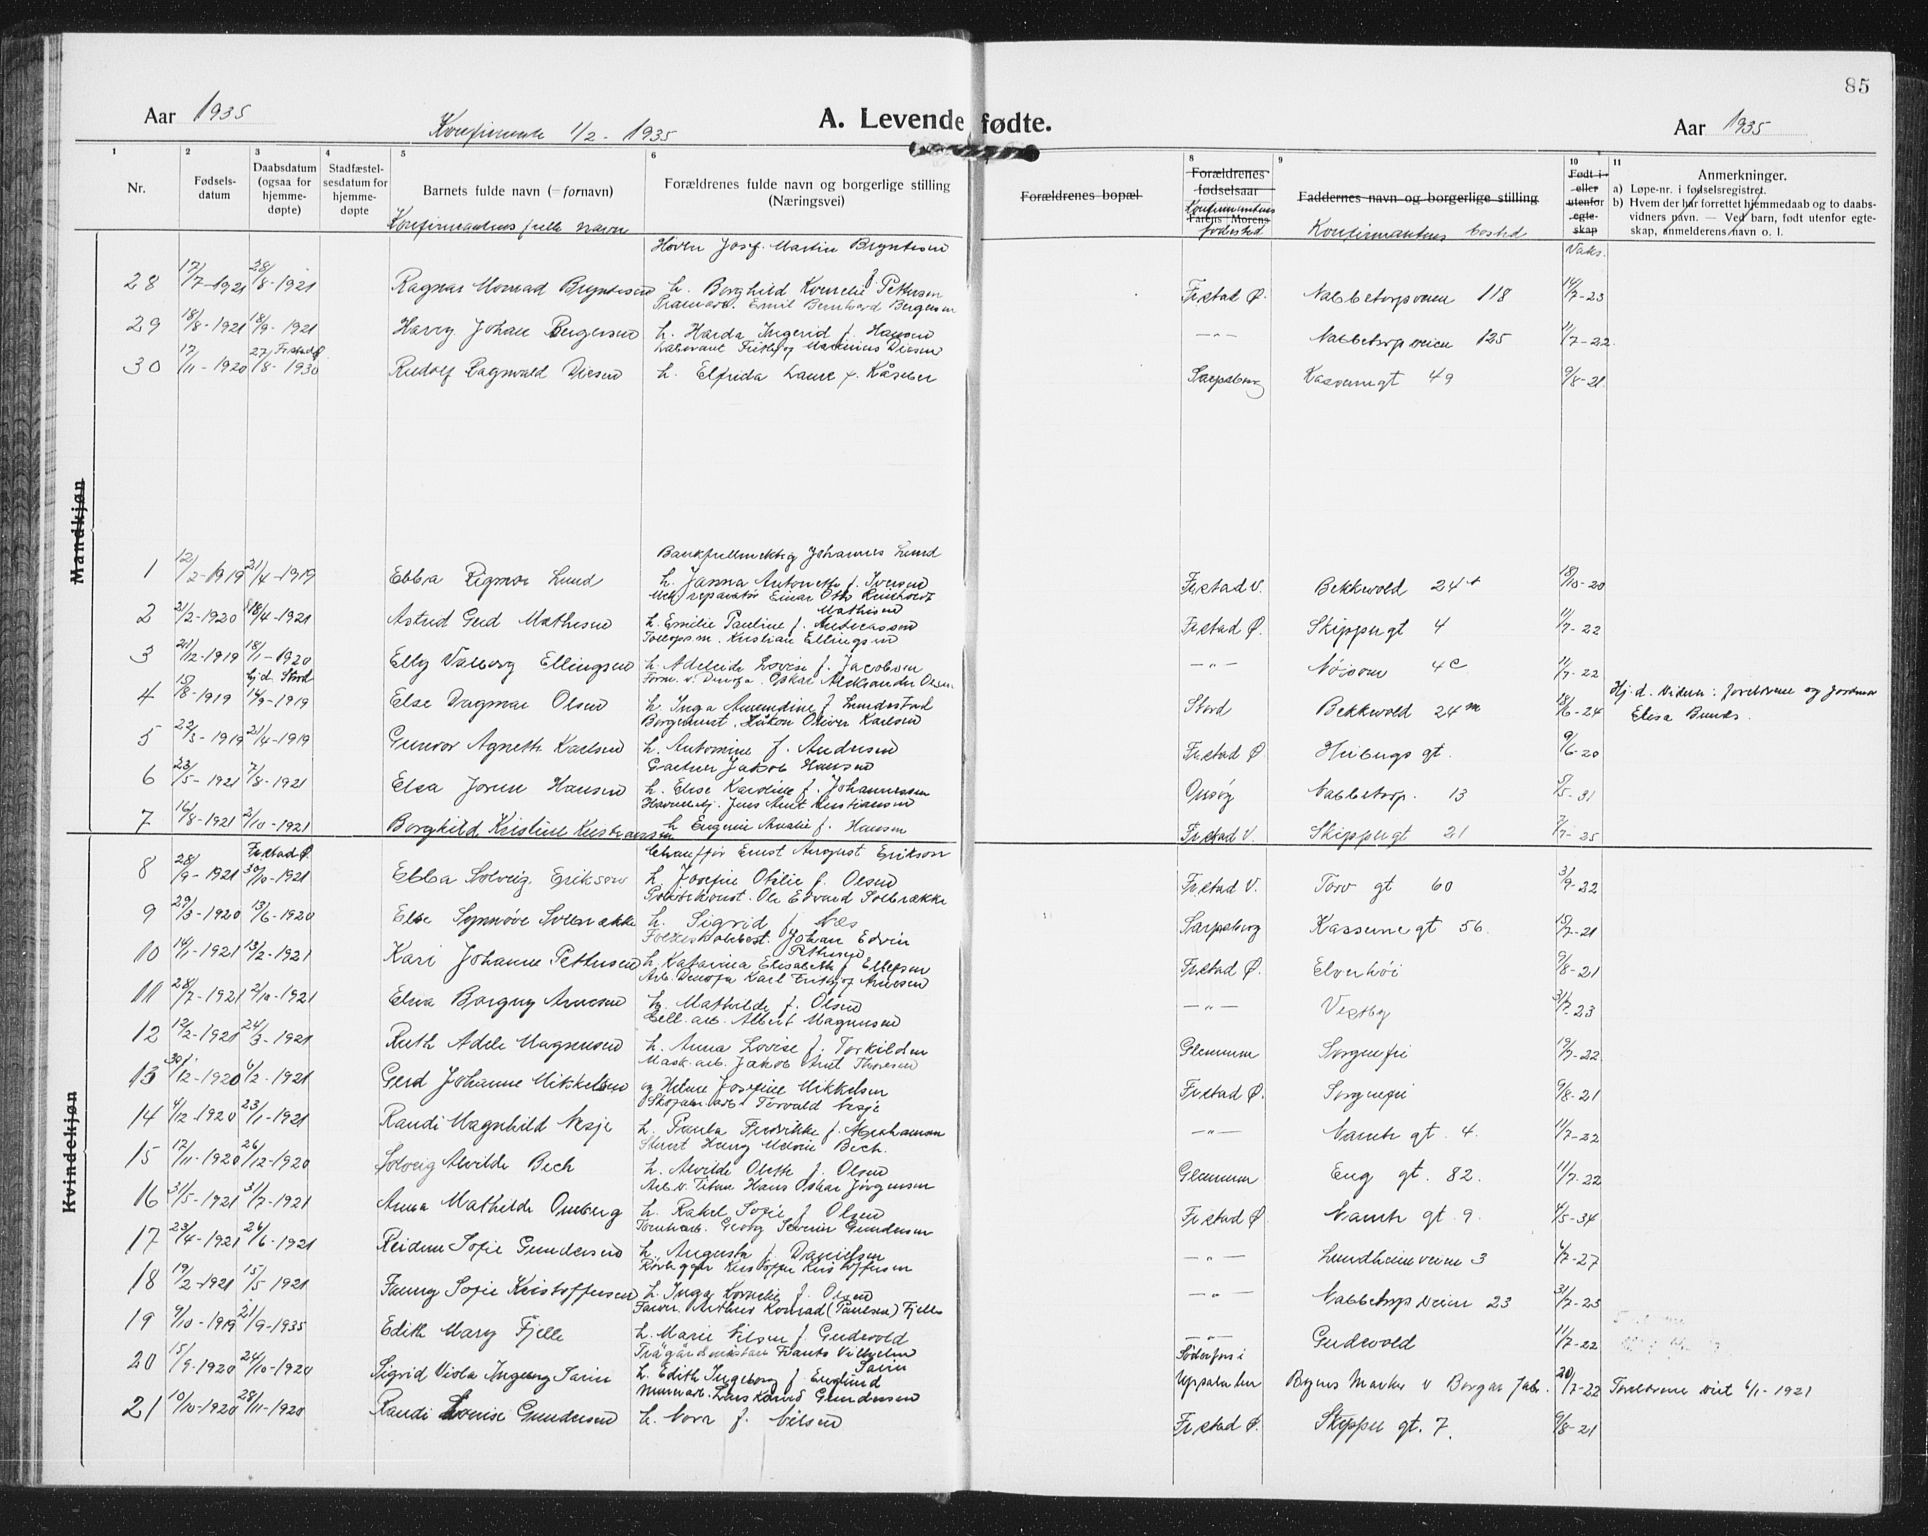 85
Aar 1935
Konfirmerte 1/2 - 1935
A. Levende fødte.
Aar 1935
1 2 3 4 5 6 8 9 10 11
Nr.
Fødsels-
datum
Daabsdatum
(ogsaa for
hjemme-
døpte)
Stadfæstel-
sesdatum for
hjemme-
døpte
Barnets fulde navn (=fornavn)
Konfirmantens fulle navn
Forældrenes fulde navn og borgerlige stilling
(Næringsvei)
Forældrenes bopæl
Forældrenes
fødselsaar
Konfirmantens
Farens Morens
fødested
Faddernes navn og borgerlige stilling
Konfirmantens bosted
Født i
eller
utenfor
egte-
skap
Vaks.
Anmerkninger.
a) Løpe-nr. i fødselsregistret.
b) Hvem der har forrettet hjemmedaab og to daabs-
vidners navn. — Ved barn, født utenfor egte-
skap, anmelderens navn o. l.
Mandkjøn
Josef Martin Bryntesen
28 17/7-1921 28/8-1921 Ragnar Monrad Bryntesen h. Borghild Kornelie f. Pettersen Fr.stad Ø. Nabbetorpveien 118 14/7-23
Emil Bernhard Bergersen
29 18/8-1921 18/9-1921 Harry Johan Bergersen h. Harda Ingerid f. Hansen —"— Nabbetorpveien 125 11/7-22
Fr.stad Ø. Marinius Diesen
30 17/11-1920 27/8-1930 Rudolf Ragnvald Diesen h. Elfrida Laura f. Kåseber Sarpsborg 49 9/8-21
Bankfullmektig Johannes Lund
1 12/2-1919 21/4-1919 Ebba Rigmor Lund h. Janna Antonette f. Iversen Fr.stad V. Bekkevold 24 18/10-20
Mek. reparatør Einar Otto
Mathisen
2 21/2-1920 18/4-1921 Astrid Gerd Mathisen h. Emilie Pauline f. Andreassen Fr.stad Ø. Skippergt 4 11/7-22
Kristian Ellingsen
3 21/12-1919 18/1-1920 Elly Valborg Ellingsen h. Adeleide Lovise f. Jacobsen —"— Nøisom 4c 11/7-22
hj.d. Stord Form. v. Denofa. Oskar Aleksander Olsen
4 15/8-1919 14/9-1919 Else Dagmar Olsen h. Inga Amundine f. Lundestad Stord Bekkevold 24m 18/6-24 Hj.d. Viden: foreldrene og jordmor
Elisa Bunds.
Håkon Oliver Karlsen
5 22/3-1919 21/4-1919 Gunvor Agneth Karlsen h. Antomine f. Andersen Fr.stad Ø. Heibergs gt. 9/6-20
Gartner Jakob Hansen
6 23/5-1921 7/8-1921 Elsa Joren Hansen h. Elise Karoline f. Johannessen Onsøy Nabbetorp. 13 5/5-31
Jens Arnt Kristiansen
7 16/8-1921 2/10-1921 Borghild Kristine Kristiansen h. Eugenie Amalie f. Hansen Fr.stad V. Skippergt 21 7/7-25
Kvindekjøn
Fr.stad Ø. Chauffør Ernst August Erikson
8 28/9-1921 30/10-1921 Ebba Solveig Erikson h. Josefine Otilie f. Olsen Fr.stad V. Torv gt 60 3/9-22
Politikonst. Ole Edvard Solbrække
9 29/3-1920 13/6-1920 Else Synnøve Solbrække h. Sigrid f. Næs Sarpsborg Kasserne gt 56. 15/7-21
Folkeskolebest. Johan Edvin
Pettersen
10 14/1-1921 13/2-1921 Kari Johanne Pettersen h. Katarina Elisabeth f. Ellefsen Fr.stad Ø. Elverhøi 9/8-21
Arb. Denofa Karl Fritjof Arnesen
11 28/7-1921 2/10-1921 Elna Borgny Arnesen h. Mathilde f. Olsen —"— Vestby 31/7-23
Cell. arb. Albert Magnusen
12 12/2-1921 24/3-1921 Ruth Adele Magnusen h. Anna Lovise f. Torkildsen Glemmen Sorgenfri 19/7-22
Mask. arb. Jakob Arnt Thoresen
13 30/12-1920 6/2-1921 Gerd Johanne Mikkelsen og Helene Josefine Mikkelsen Fr.stad Ø. Sorgenfri 9/8-21
Skofabr. arb. Torvald Nesje
14 4/12-1920 23/1-1921 Randi Magnhild Nesje h. Paula Fredrikke f. —"— 4. 11/7-22
Bech.
15 17/11-1920 26/12-1920 Solveig Alvilde Bech h. Alvilde Olette f. Olsen Glemmen Eng gt. 82. 11/7-22
Arb. v. Titan Hans Oskar Jørgensen
16 31/5-1921 31/7-1921 Anna Mathilde Omberg h. Rakel Sofie f. Olsen Fr.stad Ø. 9. 4/5-34
Tomtearb. Georg Severin Gundersen
17 23/4-1921 26/6-1921 Reidun Sofie Gundersen h. Augusta f. Danielsen —"— Lundheimveien 3 4/7-27
Rørlegger Kristoffer Kristoffersen
18 19/2-1921 15/5 1921 Fanny Sofie Kristoffersen h. Inga Kornelie f. Olsen —"— Nabbetorpveien 23 31/7-23
Arthur Konrad (Paulsen) Fjelle
19 9/10-1919 21/9-1935 Edith Mary Fjelle h. Marie Nilsen f. Gudevold —"— Gudevold 11/7-22
Trägårdmästare Frants Vilhelm
Sarin
20 15/9-1920 24/10-1920 Sigrid Viola Ingeborg Sarin h. Edith Ingeborg f. Englund Söderfors i
Uppsala län Bryns Marker v Borgar 20/7-22 Foreldrene viet 6/1-1921
Murerarb. Lars Karvid Gundersen
21 10/10-1920 28/11-1920 Randi Lovise Gundersen h. Nora f. Nilsen Fr.stad Ø. Skipper gt. 7. 9/8-21